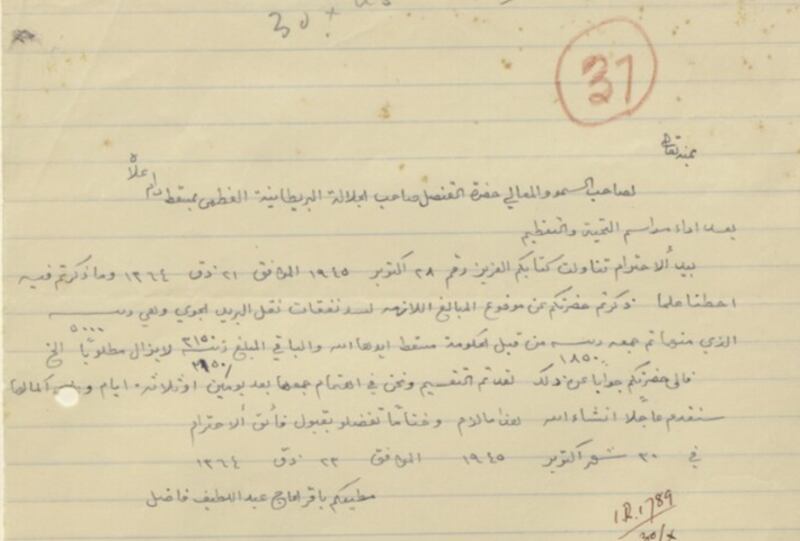 30 x 45
37
بمنه تعالى
لصاحب السمو والمعالي حضرة القنصل صاحب الجلالة البريطانية العظمى بمسقط دام علاه
بعد اداء مراسم التحية والتعظيم
بيد ألاحترام تناولت كتابكم العزيز رقم ٢٨ اكتوبر ١٩٤٥ الموافق ٢١ ذق ١٣٦٤ وما ذكرتم فيه
احطنا علما ذكرتم حضرتكم عن موضوع المبالغ اللازمه لسد نفقات نقل البريد الجوي وهي
٥٠٠٠
الذي منها تم جمعه من قبل الحكومة مسقط ايدها الله والباقي المبلغ ٣١٥٠ لايزال مطلوبًا الخ
١٨٥٠
٣١٥٠/
فالى حضرتكم جوابًا عن ذلك لقد تم التقسيم ونحن في اهتمام جمعها بعد يومين او ثلاثة ايام
ستقدم عاجلا انشاء الله هذا مالام وختامًا تفضلو بقبول فائق ألاحترام
في ٣٠ شهر اكتوبر ١٩٤٥ الموافق ٢٣ ذق ١٣٦٤
مطيعكم باقر الحاج عبد اللطيف فاضل
I.R.1789
30/x